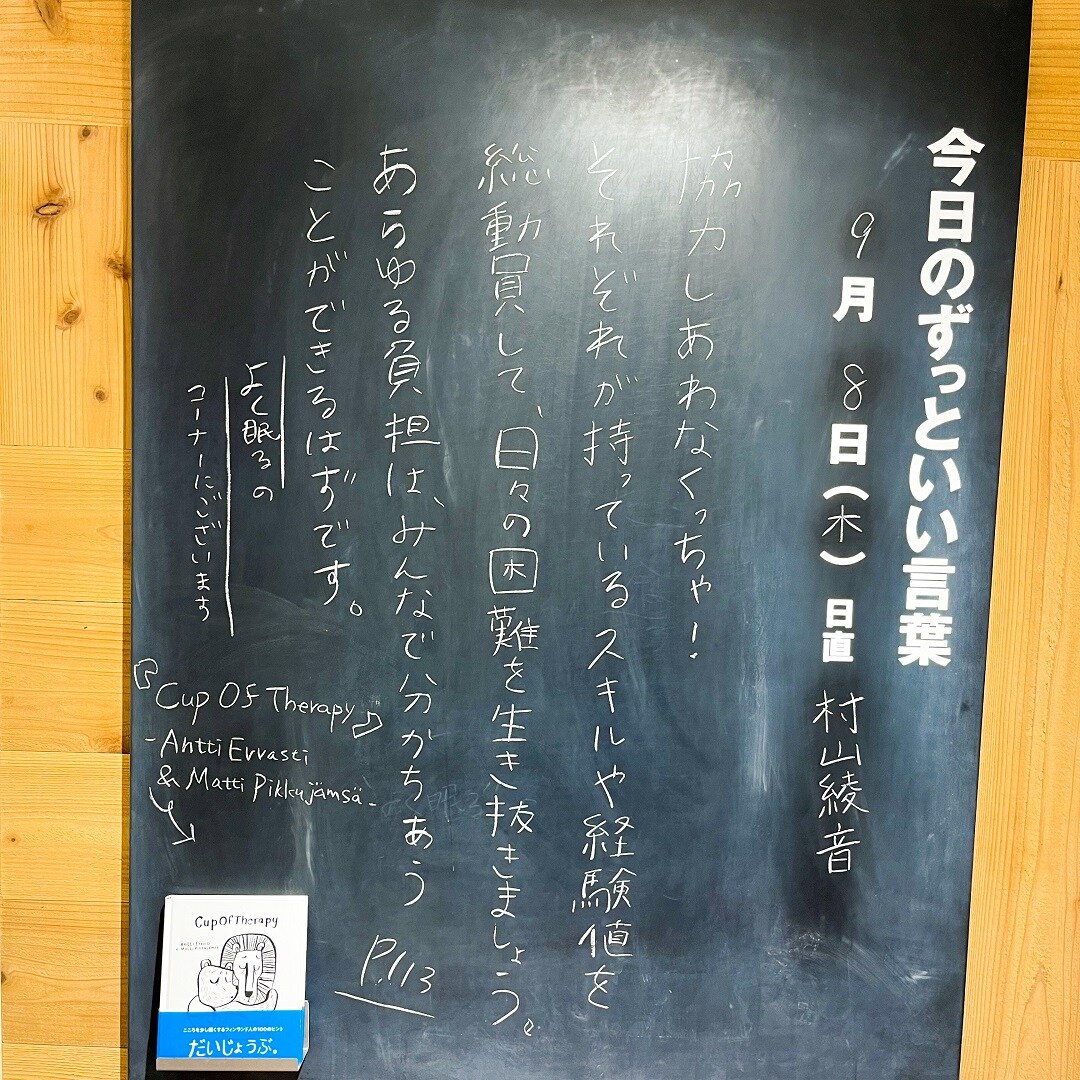 今日のずっといい言葉
9月8日(木) 日直 村山綾音
協力しあわなくっちゃ!
それぞれが持っているスキルや経験値を
総動員して、日々の困難を生き抜きましょう。
あらゆる負担は、みんなで分かちあう
ことができるはずです。
P.113
よく眠るの
コーナーにございます
『Cup Of Therapy』
-Antti Ervasti
& Matti Pikkujämsä-
Cup Of Therapy
Antti Ervasti
& Matti Pikkujämsä
こころを少し軽くするフィンランド人の100のヒント
だいじょうぶ。